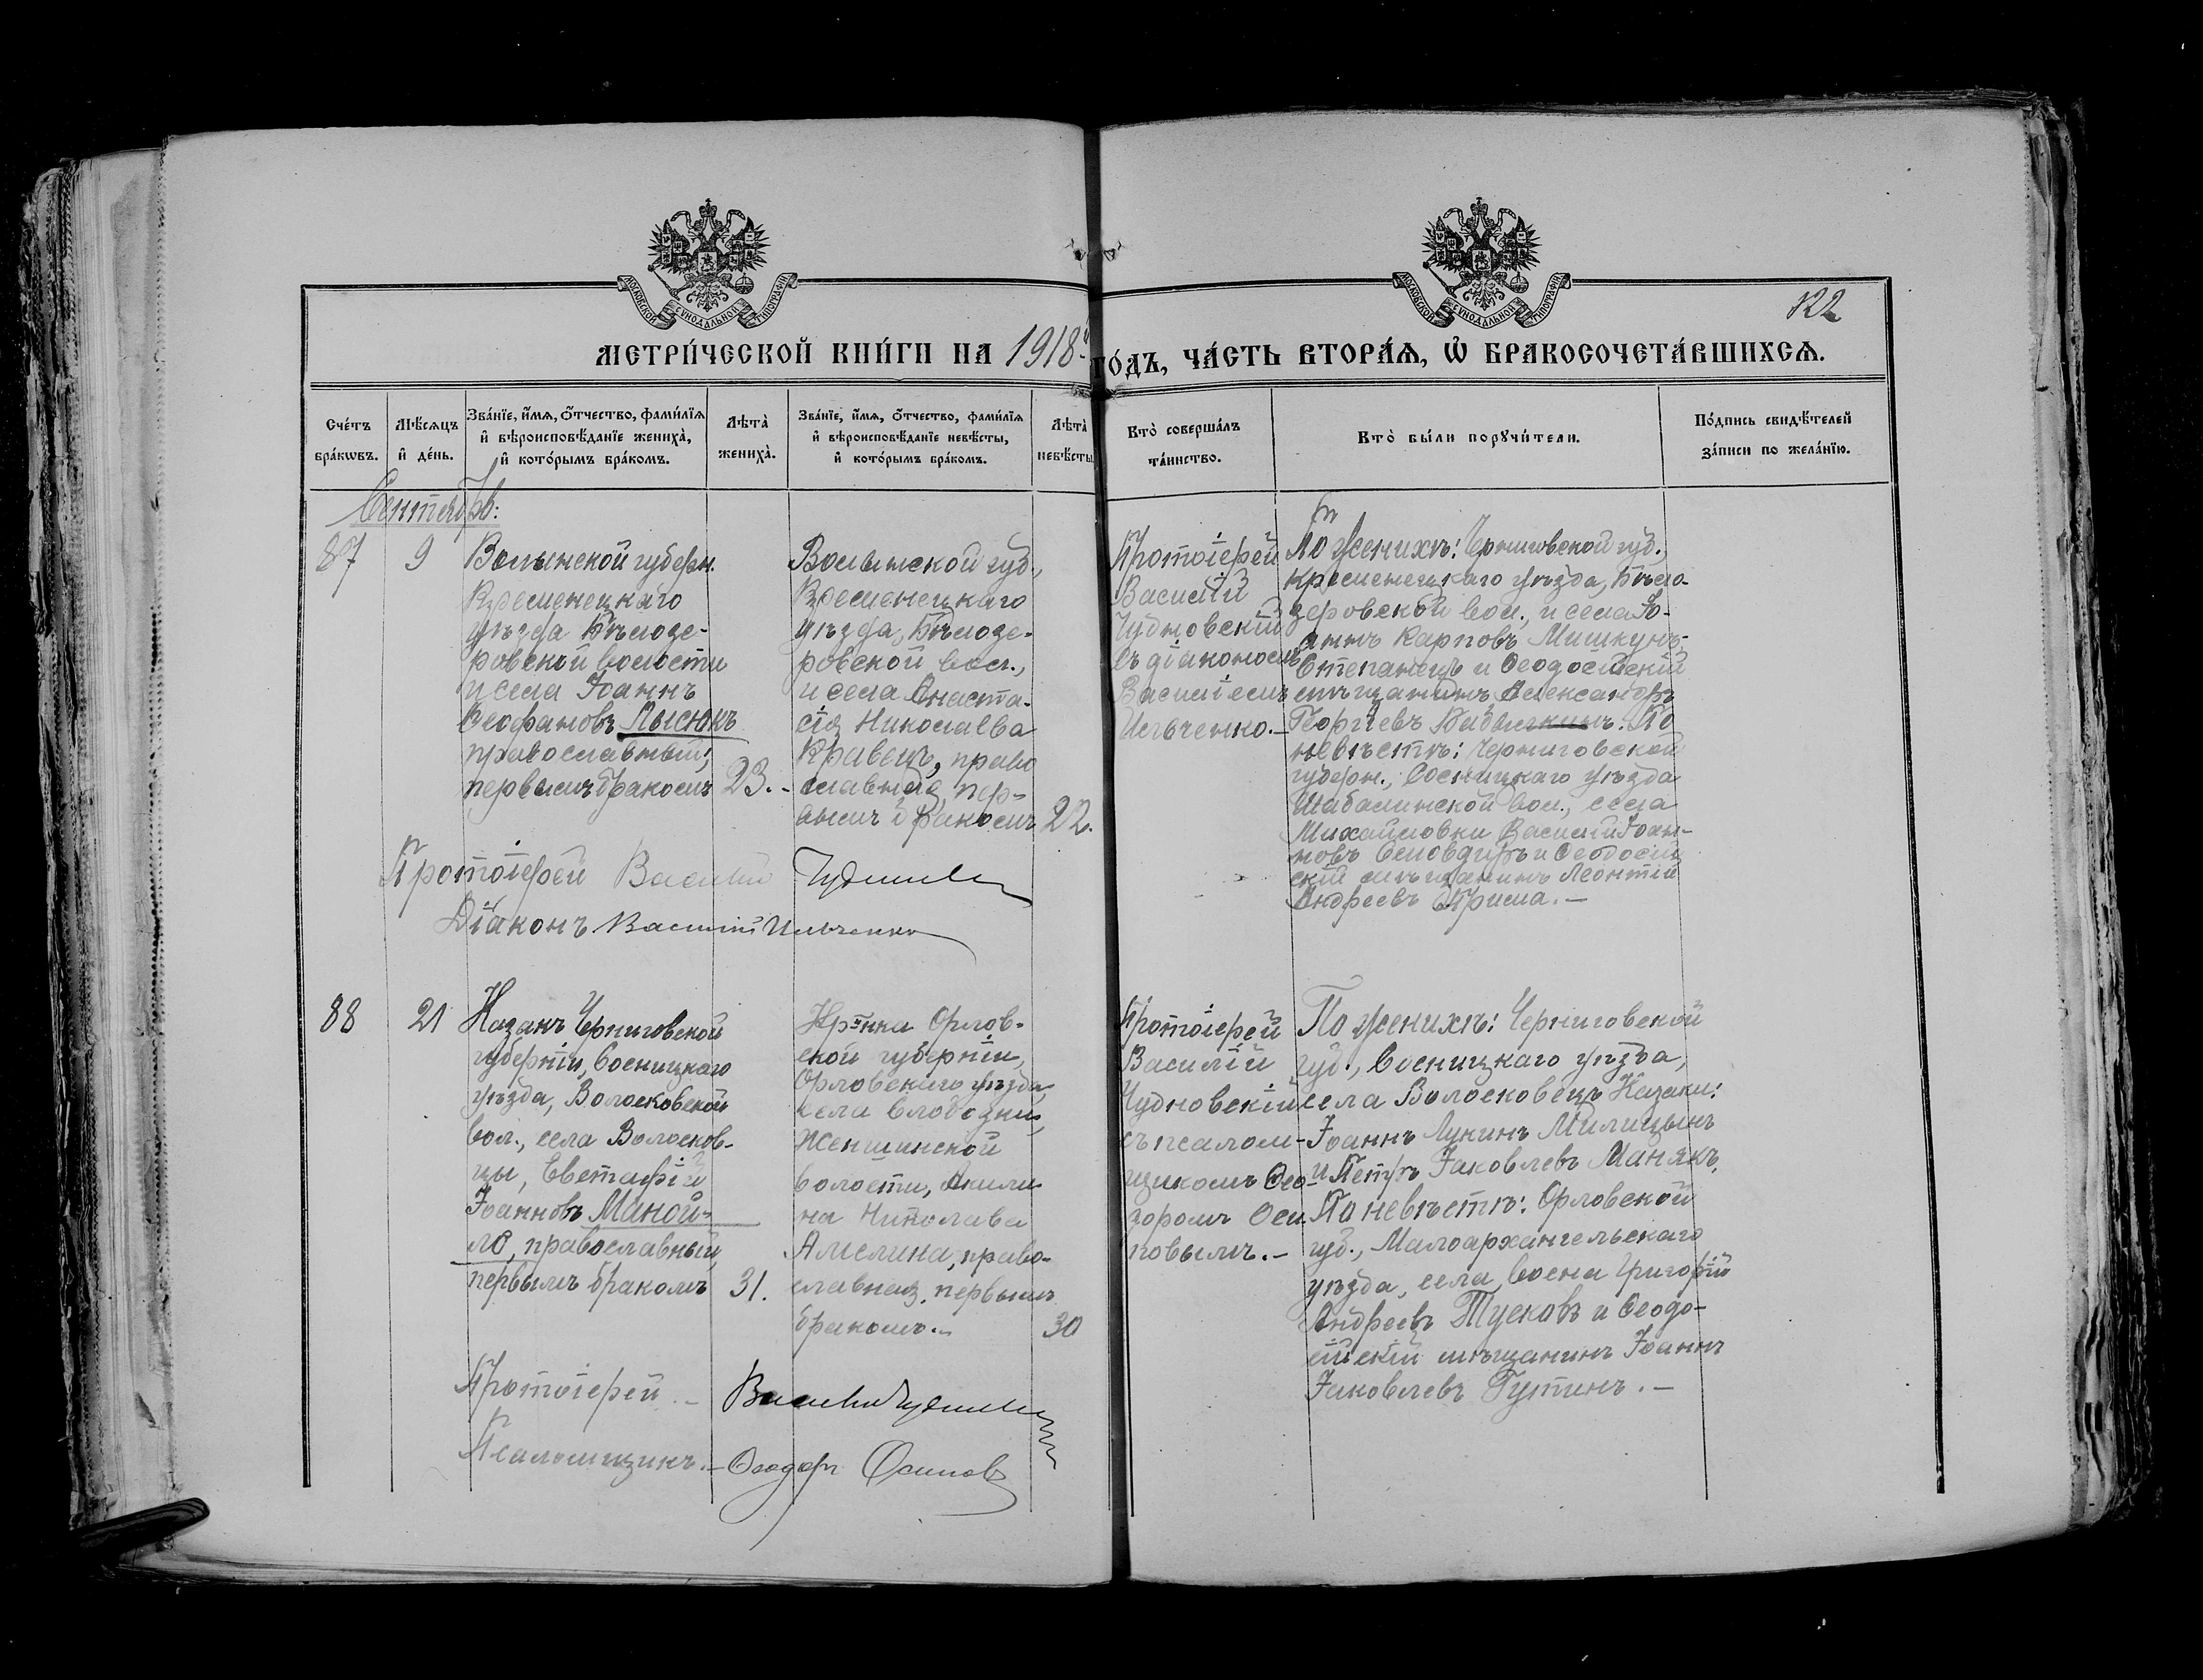 МОСКОВСКОЙ СѴНОДАЛЬНОЙ ТИПОГРАФІИ
МОСКОВСКОЙ СѴНОДАЛЬНОЙ ТИПОГРАФІИ
122
МЕТРИ́ЧЕСКОЙ КНИ́ГИ НА 1918й ГО́ДЪ, ЧА́СТЬ ВТОРА́Я, Ѡ҆ БРАКОСОЧЕТА́ВШИХСЯ.
Сче́тъ
бра́кѡвъ.
Мѣ́сяцъ
и҆ де́нь.
Зва́нїе, и҆́мя, ѻ҆́тчество, фами́лїя
и҆ вѣроисповѣ́данїе жениха̀,
и҆ кото́рымъ бра́комъ.
Лѣта̀
жениха̀.
Зва́нїе, и҆́мя, ѻ҆́тчество, фами́лїя
и҆ вѣроисповѣ́данїе невѣ́сты,
и҆ кото́рымъ бра́комъ.
Лѣта̀
невѣ́сты
Кто̀ соверша́лъ
та́инство.
Кто̀ бы́ли порꙋчи́тели.
По́дпись свидѣ́телей
за́писи по жела́нїю.
Сентябрь:
87
9
Волынской губерн.
Кременецкаго
уѣзда Бѣлозе-
ровской волости
и села Іоаннъ
Ѳеофановъ Лысюкъ
православный,
первымъ бракомъ
23.-
Волынской губ.,
Кременецкаго
уѣзда, Бѣлозе-
ровской вол.,
и села Анаста-
сія Николаева
Кравецъ, право
славная, пер-
вымъ бракомъ
22.
Протоіерей
Василій
Чудновскій
съ діакономъ
Василіемъ
Ильченко.-
По женихѣ: Черниговской губ.,
Кременецкаго уѣзда, Бѣло-
зеровской вол., и села Іо-
аннъ Карповъ
и Ѳеодосійскій
мѣщанинъ Александръ
Георгіевъ По
невѣстѣ: Черниговской
губерн., Сосницкаго уѣзда
Шабалинской вол., села
Михайловки Василій Іоан-
новъ и Ѳеодосій
скій мѣщанинъ Леонтій
Андреевъ –
Протоіерей Василій Чудновскій
Діаконъ Василій Ильченко
88
21
Казакъ Черниговской
губерніи, Сосницкаго
уѣзда, Волосковской
вол., села Волосков-
цы, Евстафій
Іоанновъ Маной-
ло, православный,
первымъ бракомъ
31.
Кр-нка Орлов-
ской губерніи,
Орловскаго уѣзда,
села Слободки,
волости, Акили
на Николаева
Амелина, право-
славная, первымъ
бракомъ.-
30
Протоіерей
Василій
Чудновскій
съ псалом-
щикомъ Ѳео-
доромъ Оси
повымъ.-
По женихѣ: Черниговской
губ., Сосницкаго уѣзда,
села Волосковецъ Казаки:
Іоаннъ Лукинъ Милицынъ
и Петръ Іаковлевъ Манякъ.
По невѣстѣ: Орловской
губ., Малоархангельскаго
уѣзда, села Григорій
Андреевъ Тусковъ и Ѳеодо-
сійскій мѣщанинъ Іоаннъ
Іаковлевъ Гутинъ.-
Протоіерей.- Василій Чудновскій
Псаломщикъ.- Ѳеодоръ Осиповъ